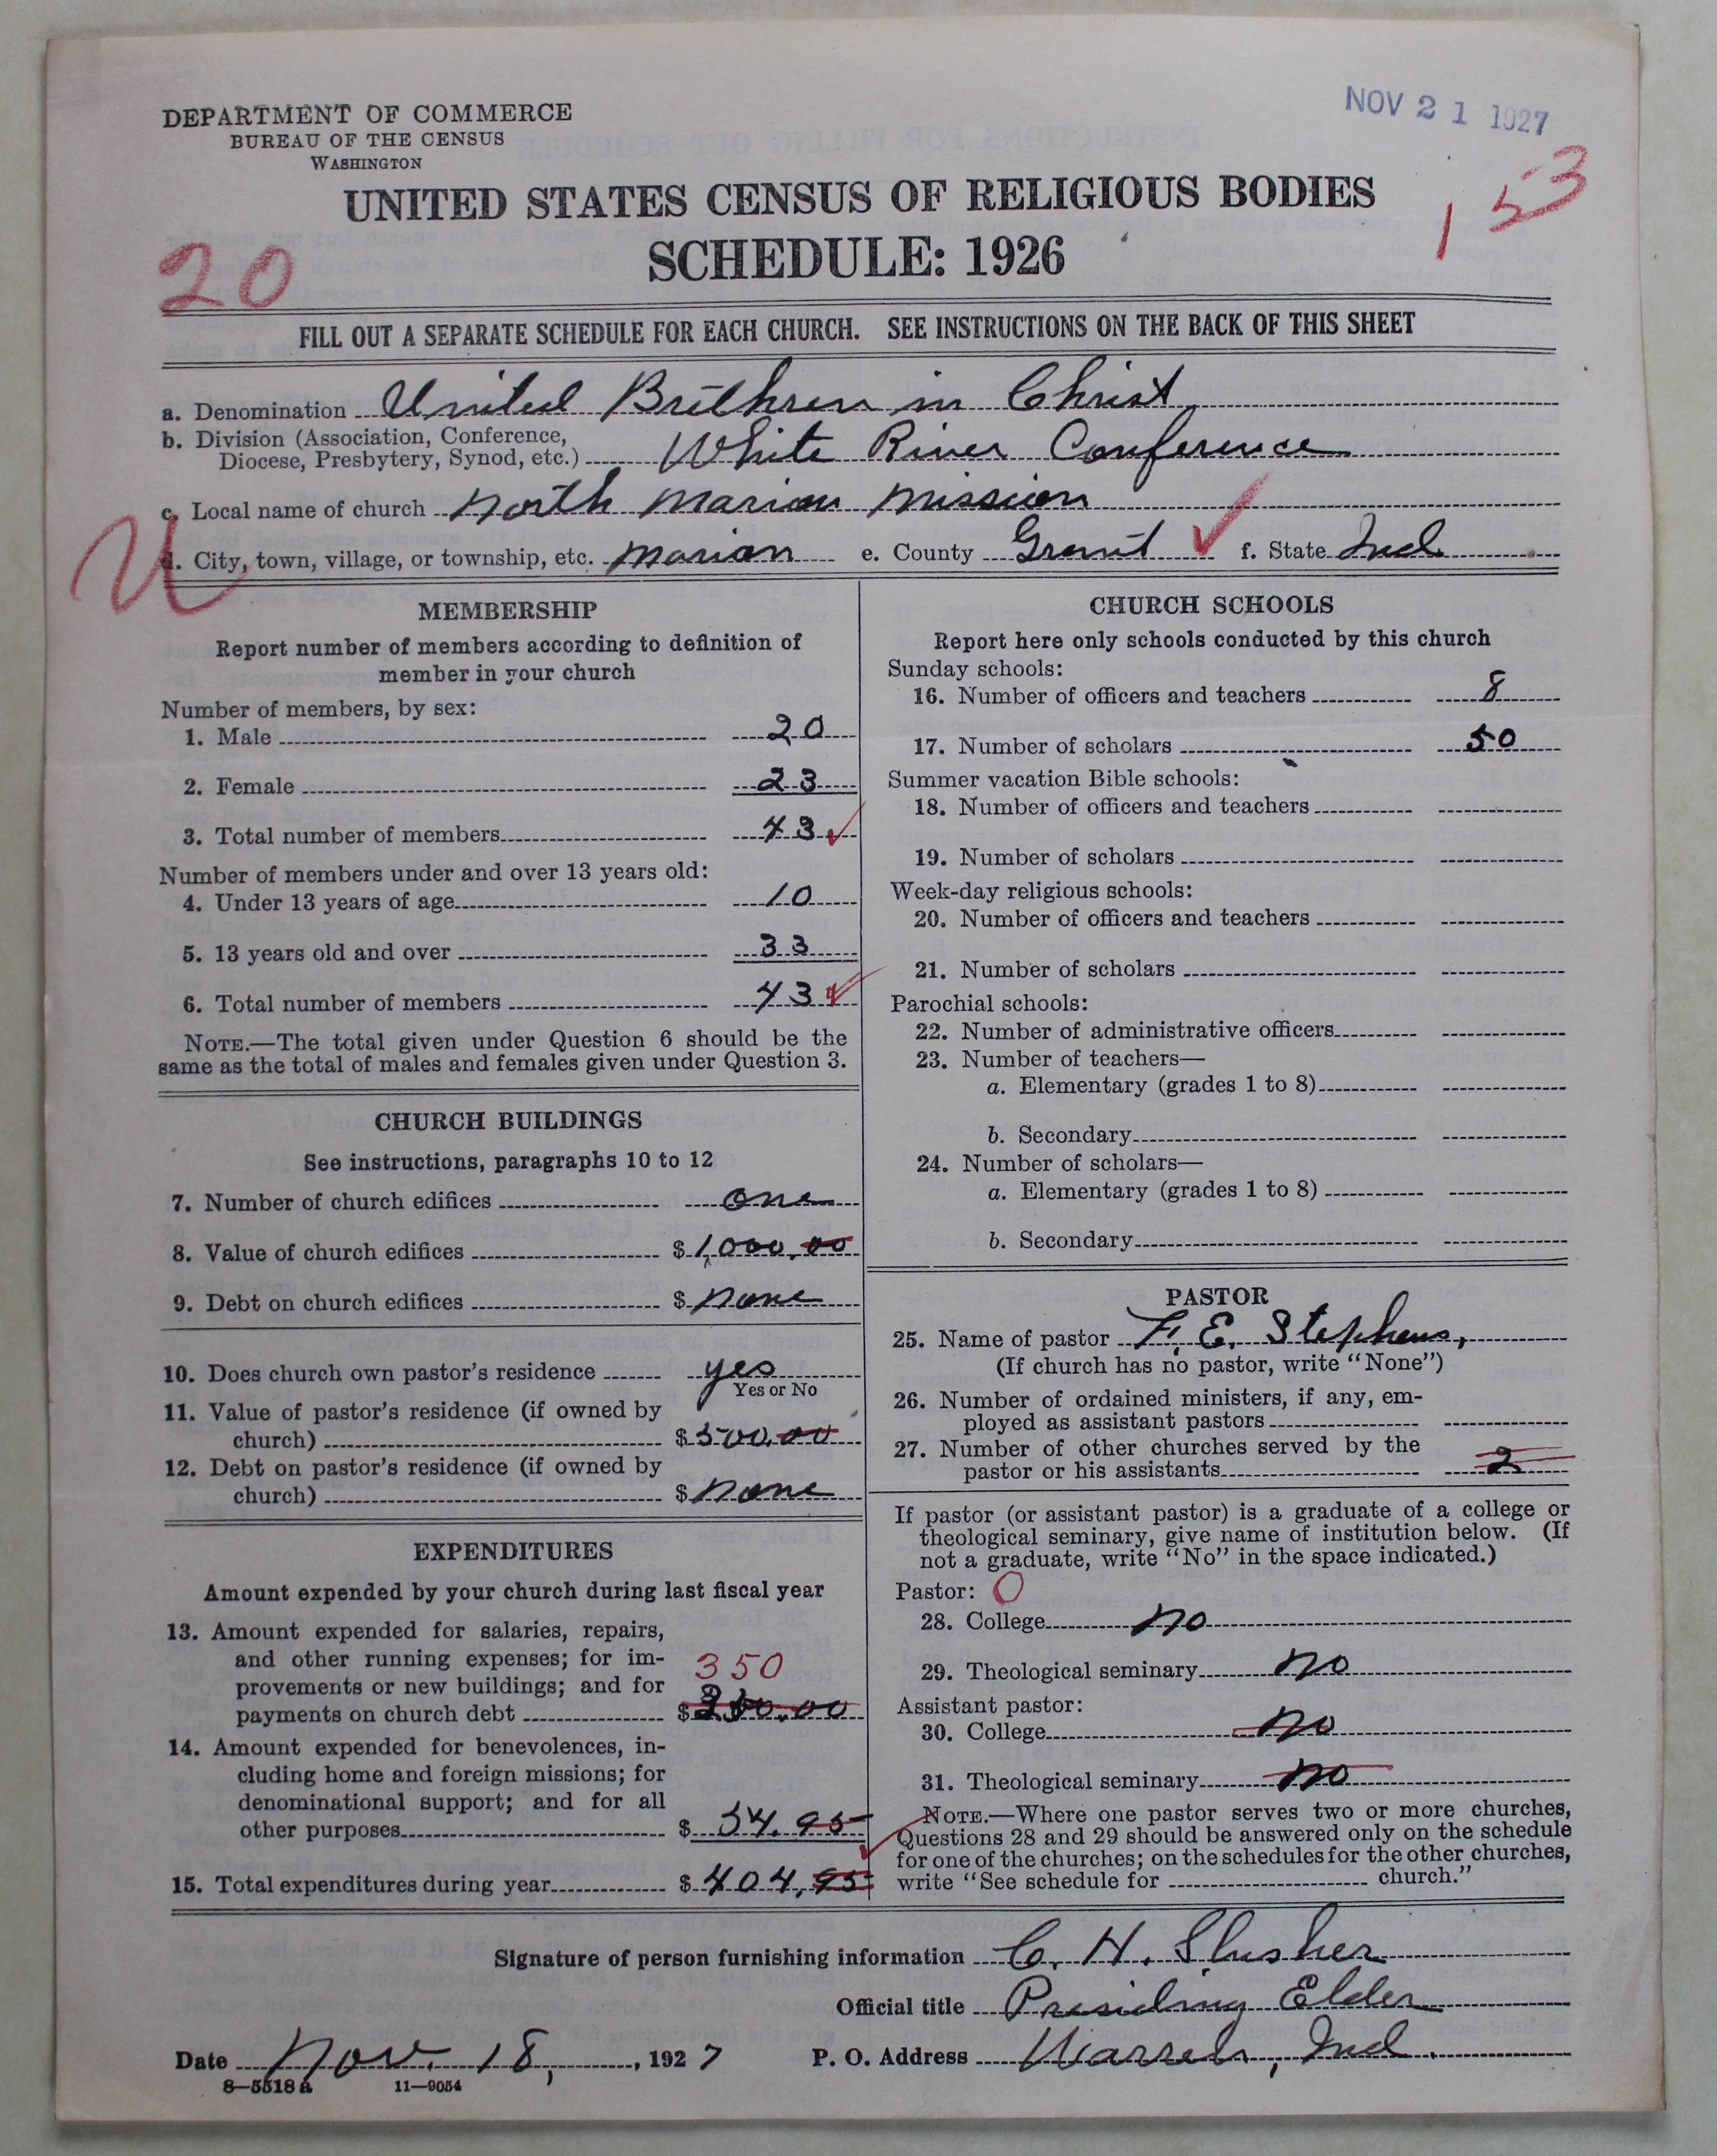 DEPARTMENT OF COMMERCE
BUREAU OF THE CENSUS
WASHINGTON
NOV 21 1927
UNITED STATES CENSUS OF RELIGIOUS BODIES
SCHEDULE: 1926
20
1 53
FILL OUT A SEPARATE SCHEDULE FOR EACH CHURCH. SEE INSTRUCTIONS ON THE BACK OF THIS SHEET
a. Denomination United Brethren in Christ
b. Division (Association, Conference,
Diocese, Presbytery, Synod, etc.) White River Conference
c. Local name of church North Marion Mission
d. City, town, village, or township, etc. Marion e. County Grant ✓ f. State Ind.
U
MEMBERSHIP
Report number of members according to definition of
member in your church
Number of members, by sex:
1. Male 20
2. Female 23
3. Total number of members 43 ✓
Number of members under and over 13 years old:
4. Under 13 years of age 10
5. 13 years old and over 33
6. Total number of members 43 ✓
NOTE.—The total given under Question 6 should be the
same as the total of males and females given under Question 3.
CHURCH BUILDINGS
See instructions, paragraphs 10 to 12
7. Number of church edifices one
8. Value of church edifices $ 1,000.00
9. Debt on church edifices $ none
10. Does church own pastor's residence yes
Yes or No
11. Value of pastor's residence (if owned by
church) $ 500.00
12. Debt on pastor's residence (if owned by
church) $ none
EXPENDITURES
Amount expended by your church during last fiscal year
13. Amount expended for salaries, repairs,
and other running expenses; for im-
provements or new buildings; and for 350
payments on church debt $ 350.00
14. Amount expended for benevolences, in-
cluding home and foreign missions; for
denominational support; and for all
other purposes $ 54.95
15. Total expenditures during year $ 404.95
CHURCH SCHOOLS
Report here only schools conducted by this church
Sunday schools:
16. Number of officers and teachers 8
17. Number of scholars 50
Summer vacation Bible schools:
18. Number of officers and teachers
19. Number of scholars
Week-day religious schools:
20. Number of officers and teachers
21. Number of scholars
Parochial schools:
22. Number of administrative officers
23. Number of teachers—
a. Elementary (grades 1 to 8)
b. Secondary
24. Number of scholars—
a. Elementary (grades 1 to 8)
b. Secondary
PASTOR
25. Name of pastor F. E. Stephens,
(If church has no pastor, write "None")
26. Number of ordained ministers, if any, em-
ployed as assistant pastors
27. Number of other churches served by the
pastor or his assistants 2
If pastor (or assistant pastor) is a graduate of a college or
theological seminary, give name of institution below. (If
not a graduate, write "No" in the space indicated.)
Pastor: 0
28. College no
29. Theological seminary no
Assistant pastor:
30. College no
31. Theological seminary no
NOTE.—Where one pastor serves two or more churches,
Questions 28 and 29 should be answered only on the schedule
for one of the churches; on the schedules for the other churches,
write "See schedule for church."
Signature of person furnishing information C. H. Slusher
Official title Presiding Elder
Date Nov. 18, , 1927 P. O. Address Warren, Ind.
8—5518 a 11—9054